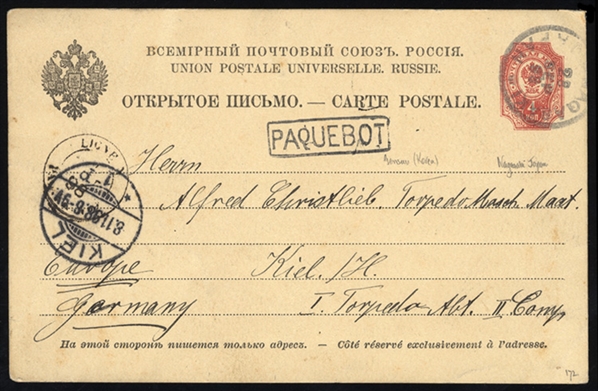 ВСЕМІРНЫЙ ПОЧТОВЫЙ СОЮЗЪ. РОССІЯ.
UNION POSTALE UNIVERSELLE. RUSSIE.
ОТКРЫТОЕ ПИСЬМО. — CARTE POSTALE.
PAQUEBOT
(Korea)
Nagasaki Japan
Herrn
Alfred Christlieb. Torpedo Masch. Maat.
KIEL
Europe
Kiel. /H.
Germany
I. Torpedo Abt. II Comp.
На этой сторонѣ пишется только адресъ. — Côté réservé exclusivement à l'adresse.
172